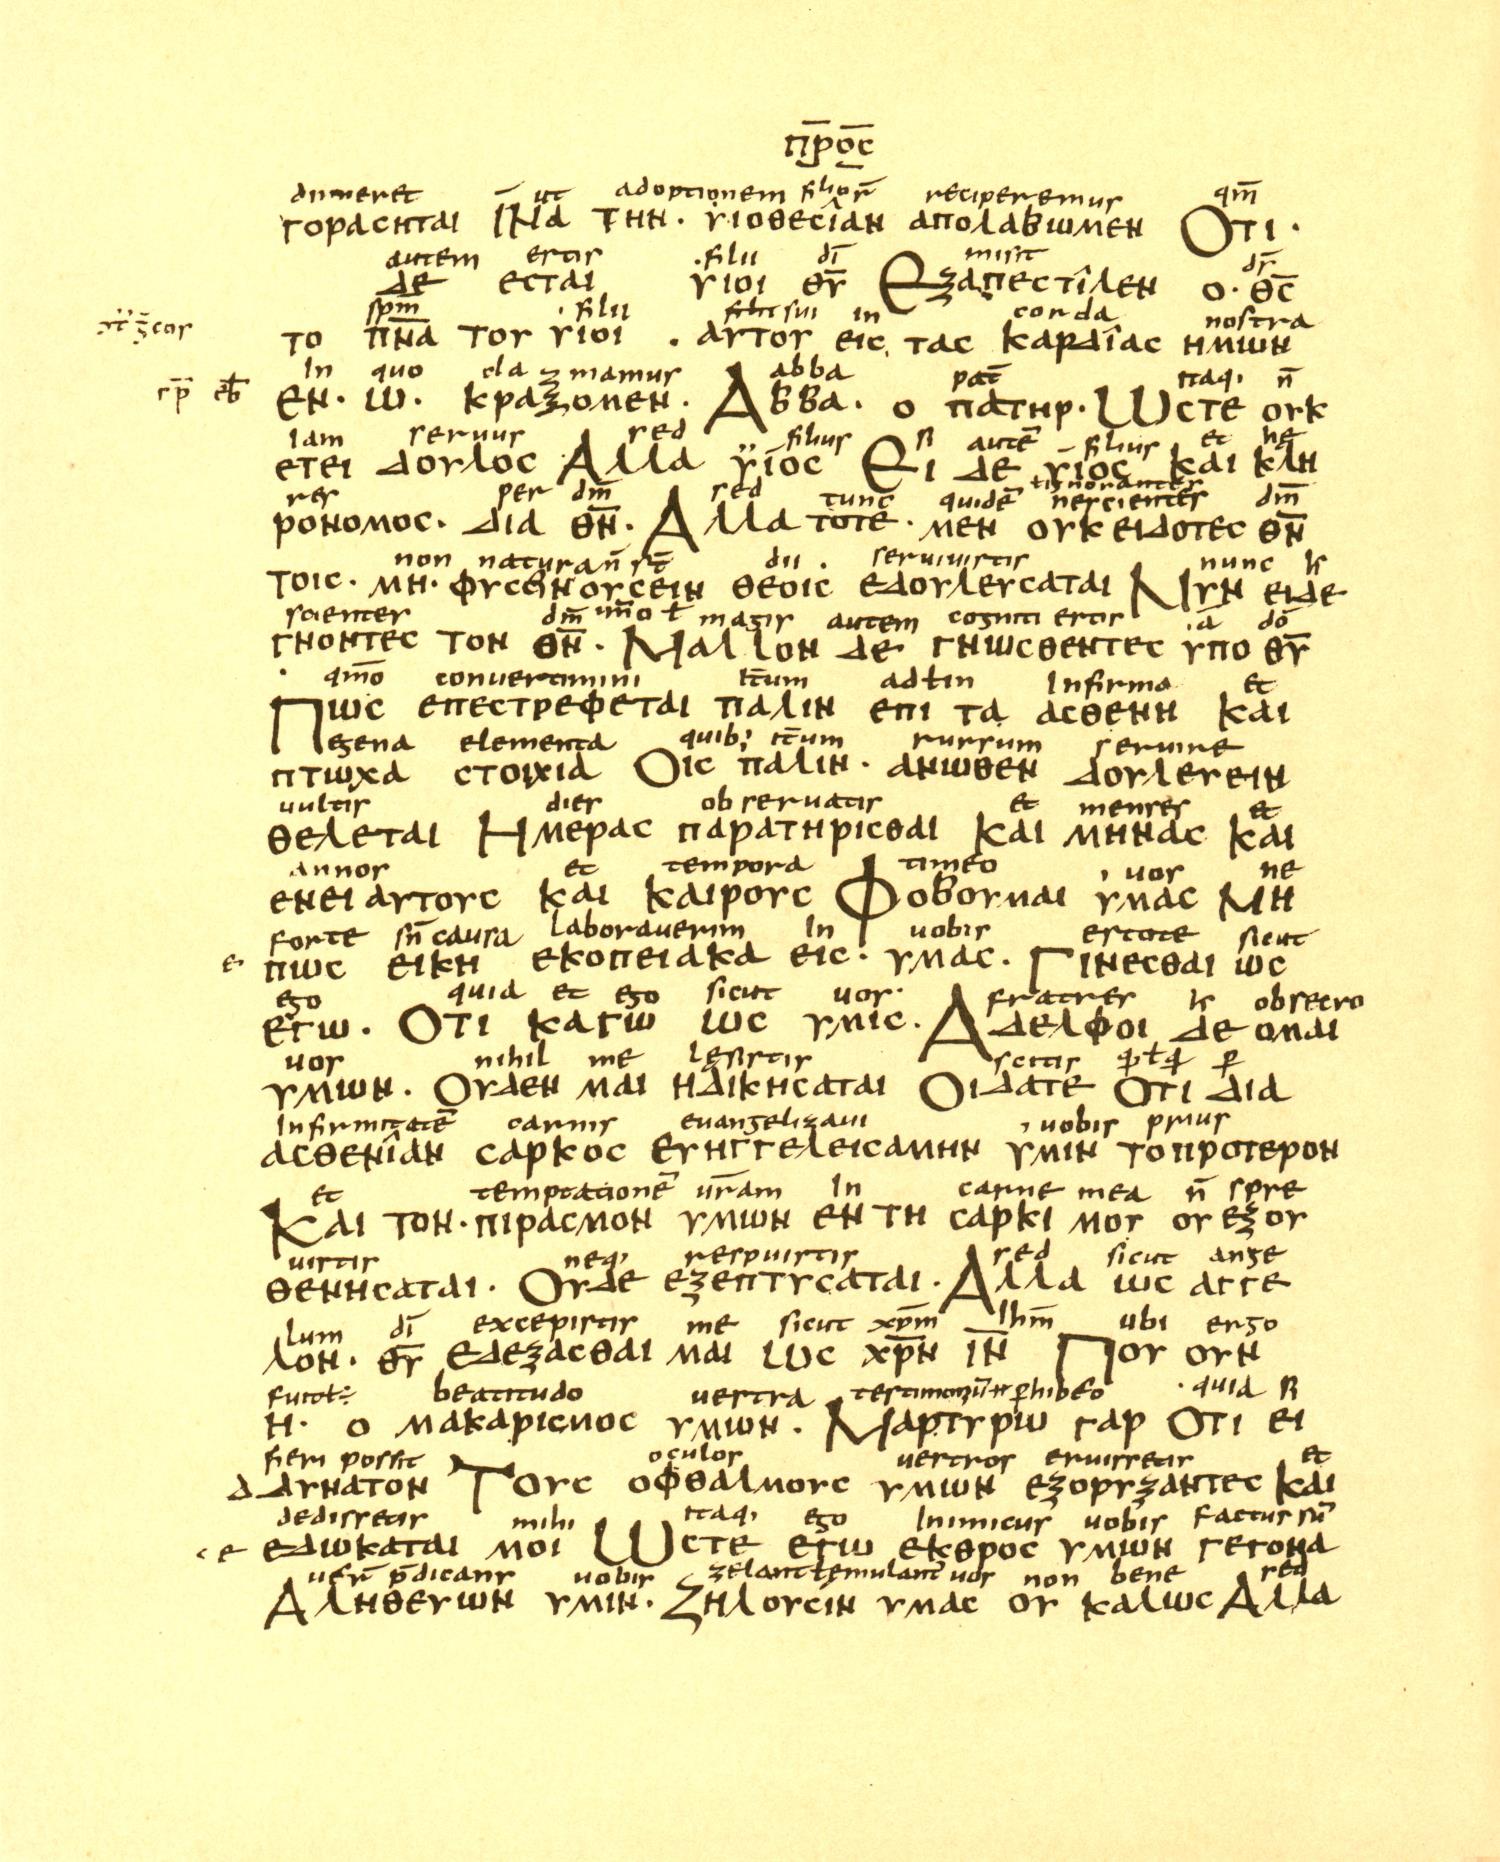 π̅ρ̅ο̅ς̅
dimeret ut adoptionem filior̅ reciperemus qm̅
γορασηται ΙΝα την· υιοθεσιαν απολαβωμεν Οτι·
autem estis ·filii di̅ misit ds̅
δε εσται υιοι θ̅υ̅ Εξαπεστιλεν ο· θ̅ς̅
spm̅ filii filii sui in corda nostra
το π̅ν̅α̅ του υιοι · αυτου εις τας καρδιας ημων
In quo cla z mamus abba pat̅ itaq; n̅
εν· ω· κραζομεν· Αββα· ο πατηρ· Ωστε ουκ
Iam seruus sed filius si aute̅ filius et he
ετει δουλος Αλλα υιος Ει δε υιος και κλη
res per dm̅ sed tunc quide̅ ł ignorantes nescientes dm̅
ρονομος· δια θ̅ν̅· Αλλα τοτε· μεν ουκ ειδοτες θ̅ν̅
non natura n̅ st̅ dii · seruiuistis nunc
τοις· μη· φυσειν ουσειν θεοις εδουλευσαται Νυν ειδε
scientes dm̅ immo ł magis autem cogniti estis a̅ do̅
γνοντες τον θ̅ν̅· Μαλλον δε γνωσθεντες υπο θ̅υ̅
qm̅o conuertimini it̅um ad ł in Infirma et
Πως επεστρεφεται παλιν επι τα ασθενη και
egena elementa quib; it̅um rursum seruire
πτωχα στοιχια Οις παλιν· ανωθεν δουλευειν
uultis dies obseruatis et menses et
θελεται Ημερας παρατηρισθαι και μηνας και
annos et tempora timeo uos ne
ενειαυτους και καιρους Φοβουμαι υμας Μη
forte sn̅ causa laborauerim In uobis estote sicut
πως εικη εκοπειακα εις· υμας· Γινεσθαι ως
ego quia et ego sicut uos· fratres obsecro
εγω· Οτι καγω ως υμις· Αδελφοι δε ομαι
uos nihil me lesistis scitis
υμων· Ουδεν μαι ηδικησαται Οιδατε Οτι δια
Infirmitate̅ carnis euangelizaui uobis prius
ασθενιαν σαρκος ευηγγελεισαμην υμιν το προτερον
et temptatione̅ ur̅am In carne mea n̅ spre
Και τον· πιρασμον υμων εν τη σαρκι μου ουεξου
uistis neq; respuistis sed sicut ange
θενησαται· Ουδε εξεπτυσαται· Αλλα ως αγγε
lum di̅ excepistis me sicut xpm̅ Ihm̅ ubi ergo
λον· θ̅υ̅ εδεξασθαι μαι ως χ̅ρ̅ν̅ ι̅ν̅ Που ουν
beatitudo uestra quia si
η· ο μακαρισμος υμων· Μαρτυριω γαρ Οτι ει
fieri possit oculos uestros eruissetis et
δ δυνατον Τους οφθαλμους υμων εξορυξαντες και
dedissetis mihi itaq; ego Inimicus uobis factus su̅
εδωκαται μοι Ωστε εγω εκθρος υμων γεγονα
ueru̅ p̅dicans uobis zelant ł emulant uos non bene sed
Αληθευων υμιν· Ζηλουσιν υμας ου καλως Αλλα